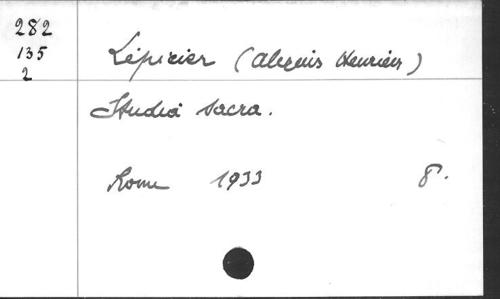 282
135
2
Lépicier (Alexis Henricus)
Studia sacra.
Rome 1933 8°.